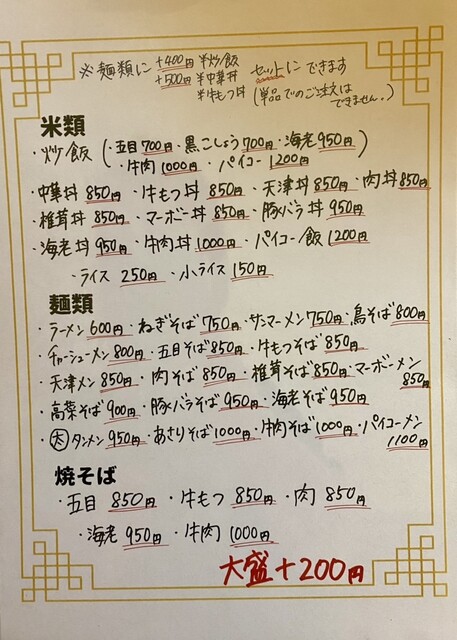 ※麺類に +400円 半炒飯 セットにできます
+500円 半中華丼
半牛もつ丼 (単品でのご注文はできません。)
米類
・炒飯 (・五目700円・黒こしょう700円・海老950円
・牛肉1000円・パイコー1200円)
・中華丼850円・牛もつ丼850円・天津丼850円・肉丼850円
・椎茸丼850円・マーボー丼850円・豚バラ丼950円
・海老丼950円・牛肉丼1000円・パイコー飯1200円
・ライス250円・小ライス150円
麺類
・ラーメン600円・ねぎそば750円・サンマーメン750円・鳥そば800円
・チャーシューメン800円・五目そば850円・牛もつそば850円
・天津メン850円・肉そば850円・椎茸そば850円・マーボーメン850円
・高菜そば900円・豚バラそば950円・海老そば950円
・太タンメン950円・あさりそば1000円・牛肉そば1000円・パイコーメン1100円
焼そば
・五目850円・牛もつ850円・肉850円
・海老950円・牛肉1000円
大盛+200円